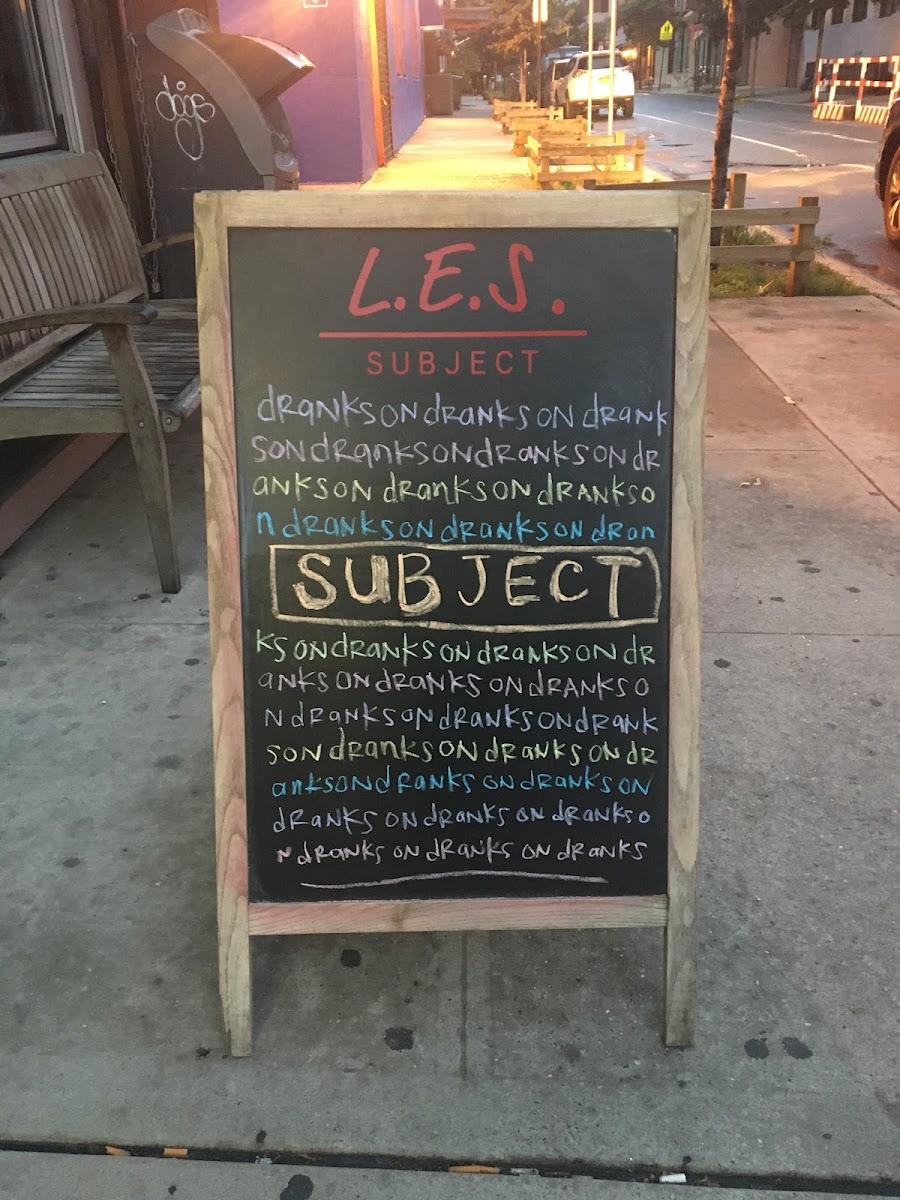 dogs
L.E.S.
SUBJECT
dRanksONdRanksONdRank
SONdRanksONdRanksONdR
ANKSON dRanksONdRANKSO
n dRanksONdRanksONdRan
SUBJECT
KSONdRanksONdRanksONdR
ANKSONdRANKSONdRANKSO
NdRANKSONdRANKSONdRANK
SONdRanksONdRanksONdR
anksoNdRANKSONdRANKSON
dRANKSONdRANKSONdRANKSO
NdRANKSONdRANKSONdRANKS